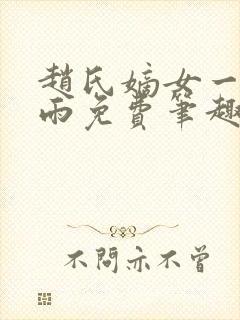 趙氏嫡女一
雨免費筆趣
不問亦不曾